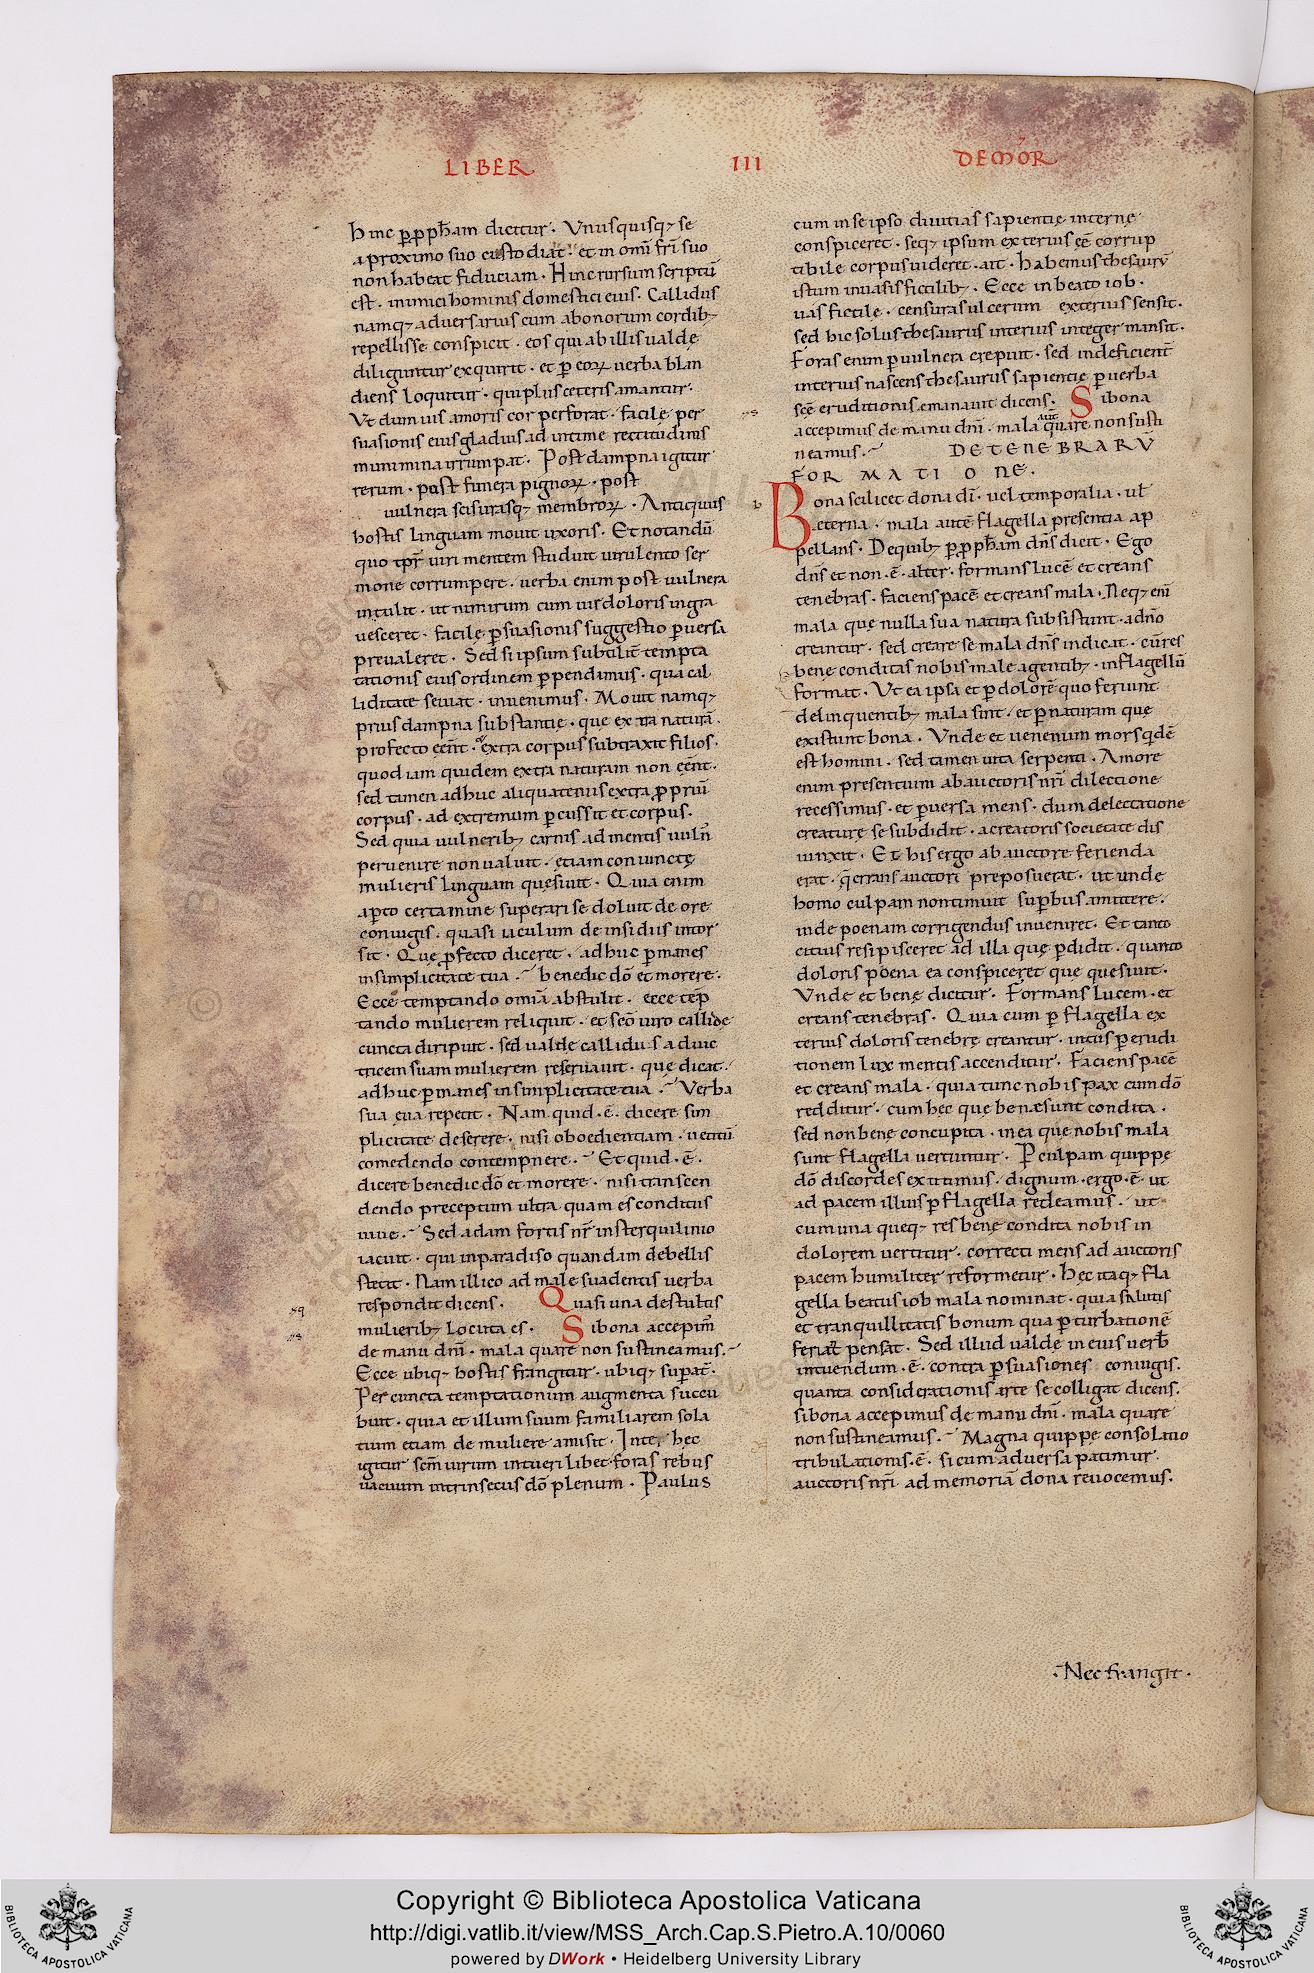 LIBER III DE MŌR
Hinc ꝑ ꝓph̄am dicitur · Vnusquisq; se
a proximo suo custodiat · et in omī frī suo
non habeat fiduciam · Hinc rursum scriptū
est · inimici hominis domestici eius · Callidus
namq; adversarius cum a bonorum cordib;
repellisse conspicit · eos qui ab illis ualdę
diliguntur exquirit · et ꝑ eoꝝ uerba blan
diens loquitur · qui plus ceteris amantur ·
Vt dum uis amoris cor perforat · facile per
suasionis eius gladius ad intime rectitudinis
munimina irrumpat · Post dampna igitur
rerum · post funera pignoꝝ · post
uulnera scisurasq; membroꝝ · Antiquus
hostis linguam mouit uxoris · Et notandū
quo tpr̄ uiri mentem studuit uirulento ser
mone corrumpere · uerba enim post uulnera
intulit · ut nimirum cum uis doloris ingra
uesceret · facile ꝑsuasionis suggestio ꝑuersa
preualeret · Sed si ipsum subtilit̄ tempta
tationis eius ordinem ꝑpendimus · qua cal
liditate seuiat · inuenimus · Mouit namq;
prius dampna substantię · que extra naturā ·
profecto eēnt · extra corpus subtraxit filios ·
quod iam quidem extra naturam non eēnt ·
sed tamen adhuc aliquatenus extra ꝓpriū
corpus · ad extremum ꝑcussit et corpus ·
Sed quia uulnerib; carnis ad mentis uuln̄
peruenire non ualuit · etiam coniunctę
mulieris linguam quesiuit · Quia enim
aꝑto certamine superari se doluit de ore
coniugis · quasi iaculum de insidiis intor
sit · Quę ꝓfecto diceret · adhuc ꝑmanes
in simplicitate tua · benedic dō et morere ·
Ecce temptando omīa abstulit · ecce tēp
tando mulierem reliquit · et scō uiro callide
cuncta diripuit · sed ualde callidus adiu
tricem suam mulierem reseruauit · quę dicat ·
adhuc ꝑmanes in simplicitate tua · Verba
sua eua repetit · Nam quid · ē · dicere sim
plicitate deserere · nisi oboedientiam · uetitū
comedendo contempnere · Et quid · ē ·
dicere benedic dō et morere · nisi transcen
dendo preceptum ultra quam es conditus
uiue · Sed adam fortis nr̄ in sterquilinio
iacuit · qui in paradiso quondam debellis
stetit · Nam illico ad male suadentis uerba
respondit dicens · Quasi una de stultis
mulierib; locuta es · Si bona accepim̄
de manu dnī · mala quare non sustineamus ·
Ecce ubiq; hostis frangitur · ubiq; suꝑat̄ ·
Per cuncta temptationum augmenta succu
buit · quia et illum suum familiarem sola
tium etiam de muliere amisit · Inter hec
igitur scm̄ uirum intueri libet foras rebus
uacuum intrinsecus dō plenum · Paulus
cum in se ipso diuitias sapientię internę
conspiceret · seq; ipsum exterius eē corrup
tibile corpus uideret · ait · habemus thesaurū
istum in uasis fictilib; · Ecce in beato iob ·
uas fictile · censuras ulcerum exterius sensit ·
sed hic solus thesaurus interius integer mansit ·
Foras enim ꝑ uulnera crepuit · sed indeficient̄
interius nascens thesaurus sapientię ꝑ uerba
scē eruditionis emanauit dicens · Si bona
accepimus de manu dnī · mala aut̄ quare non susti
neamus · DE TENEBRARŪ
FORMATIONE ·
Bona scilicet dona dī · uel temporalia · ul̄
ęterna · mala autē flagella presentia ap
pellans · De quib; ꝑ ꝓph̄am dn̄s dicit · Ego
dn̄s et non · ē · alter · formans lucē et creans
tenebras · faciens pacē et creans mala · Neq; enī
mala quę nulla sua natura subsistunt · a dn̄o
creantur · sed creare se mala dn̄s indicat · cū res
bene conditas nobis male agentib; · in flagellū
format · Vt ea ipsa et ꝑ dolorē quo feriunt
delinquentib; mala sint · et ꝑ naturam quę
existunt bona · Vnde et uenenum mors qdē
est homini · sed tamen uita serpenti · Amore
enim presentium ab auctoris nr̄i dilectione
recessimus · et ꝑuersa mens · dum delectatione
creaturę se subdidit · a creatoris societate dis
iunxit · Et his ergo ab auctore ferienda
erat · q̄ errans auctori preposuerat · ut unde
homo culpam non timuit suꝑbus amittere ·
inde poenam corrigendus inueniret · Et tanto
citius resipisceret ad illa quę ꝑdidit · quanto
doloris poena ea conspiceret que quesiuit ·
Vnde et bene dicitur · Formans lucem · et
creans tenebras · Quia cum ꝑ flagella ex
terius doloris tenebrę creantur · intus ꝑ erudi
tionem lux mentis accenditur · Faciens pacē
et creans mala · quia tunc nobis pax cum dō
redditur · cum hec que bene sunt condita ·
sed non bene concupita · in ea que nobis mala
sunt flagella uertuntur · P culpam quippe
dō discordes extitimus · dignum · ergo · ē · ut
ad pacem illius ꝑ flagella redeamus · ut
cum una queq; res bene condita nobis in
dolorem uertitur · correcti mens ad auctoris
pacem humiliter reformetur · Hec itaq; fla
gella beatus iob mala nominat · quia salutis
et tranquillitatis bonum qua ꝑturbationē
feriat pensat · Sed illud ualde in eius uerb̄
intuendum · ē · contra ꝑsuasiones coniugis ·
quanta considerationis arte se colligat dicens ·
si bona accepimus de manu dnī · mala quare
non sustineamus · Magna quippe consolatio
tribulationis · ē · si cum aduersa patimur ·
auctoris nr̄i ad memoriā dona reuocemus ·
· Nec frangit ·
Copyright © Biblioteca Apostolica Vaticana
http://digi.vatlib.it/view/MSS_Arch.Cap.S.Pietro.A.10/0060
powered by DWork • Heidelberg University Library
BIBLIOTECA APOSTOLICA VATICANA
BIBLIOTECA APOSTOLICA VATICANA